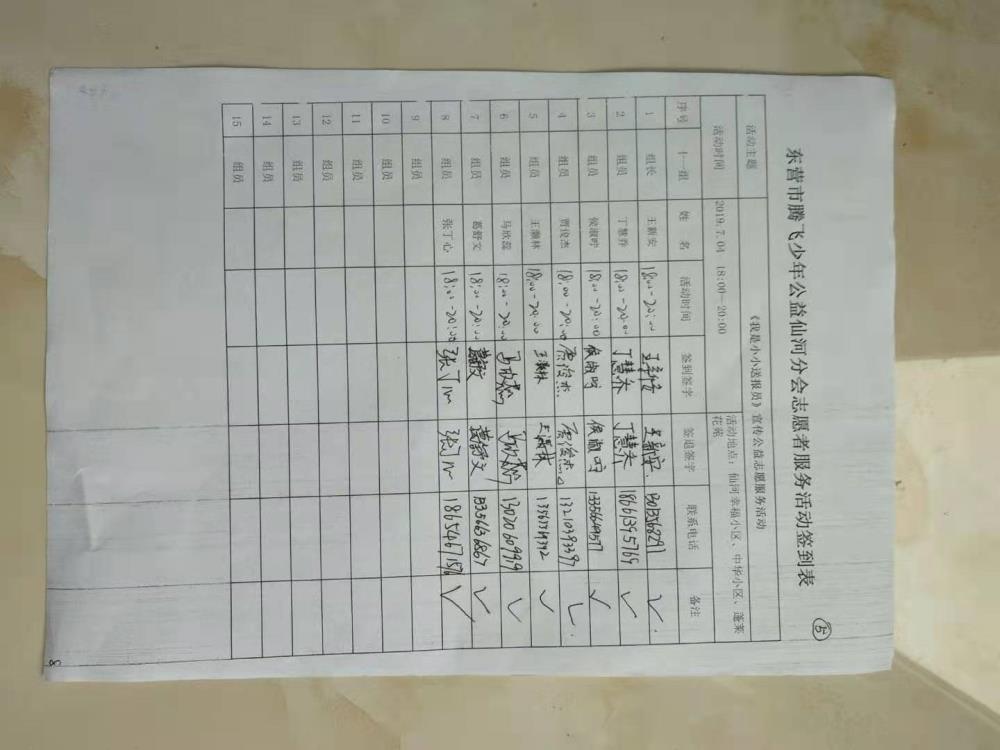 东营市腾飞少年公益仙河分会志愿者服务活动签到表
活动主题 《我是小小送报员》宣传公益志愿服务活动
活动时间 2019.7.04 18:00—20:00 活动地点：仙河幸福小区、中华小区、蓬莱花苑
序号 十一组 姓 名 活动时间 签到签字 签退签字 联系电话 备注
1 组长 王新安 18:00-20:00 王新安 王新安 ✓
2 组员 丁慧乔 18:00-20:00 丁慧乔 丁慧乔 18661395769 ✓
3 组员 侯淑咛 18:00-20:00 侯淑咛 侯淑咛 ✓
4 组员 贾俊杰 18:00-20:00 贾俊杰 贾俊杰 13210393397 ✓
5 组员 王瀚林 18:00-20:00 王瀚林 王瀚林 ✓
6 组员 马欣蕊 18:00-20:00 马欣蕊 马欣蕊 13020609919 ✓
7 组员 葛舒文 18:00-20:00 葛舒文 葛舒文 ✓
8 组员 张丁心 18:00-20:00 张丁心 张丁心 18654671576 ✓
9 组员
10 组员
11 组员
12 组员
13 组员
14 组员
15 组员
8